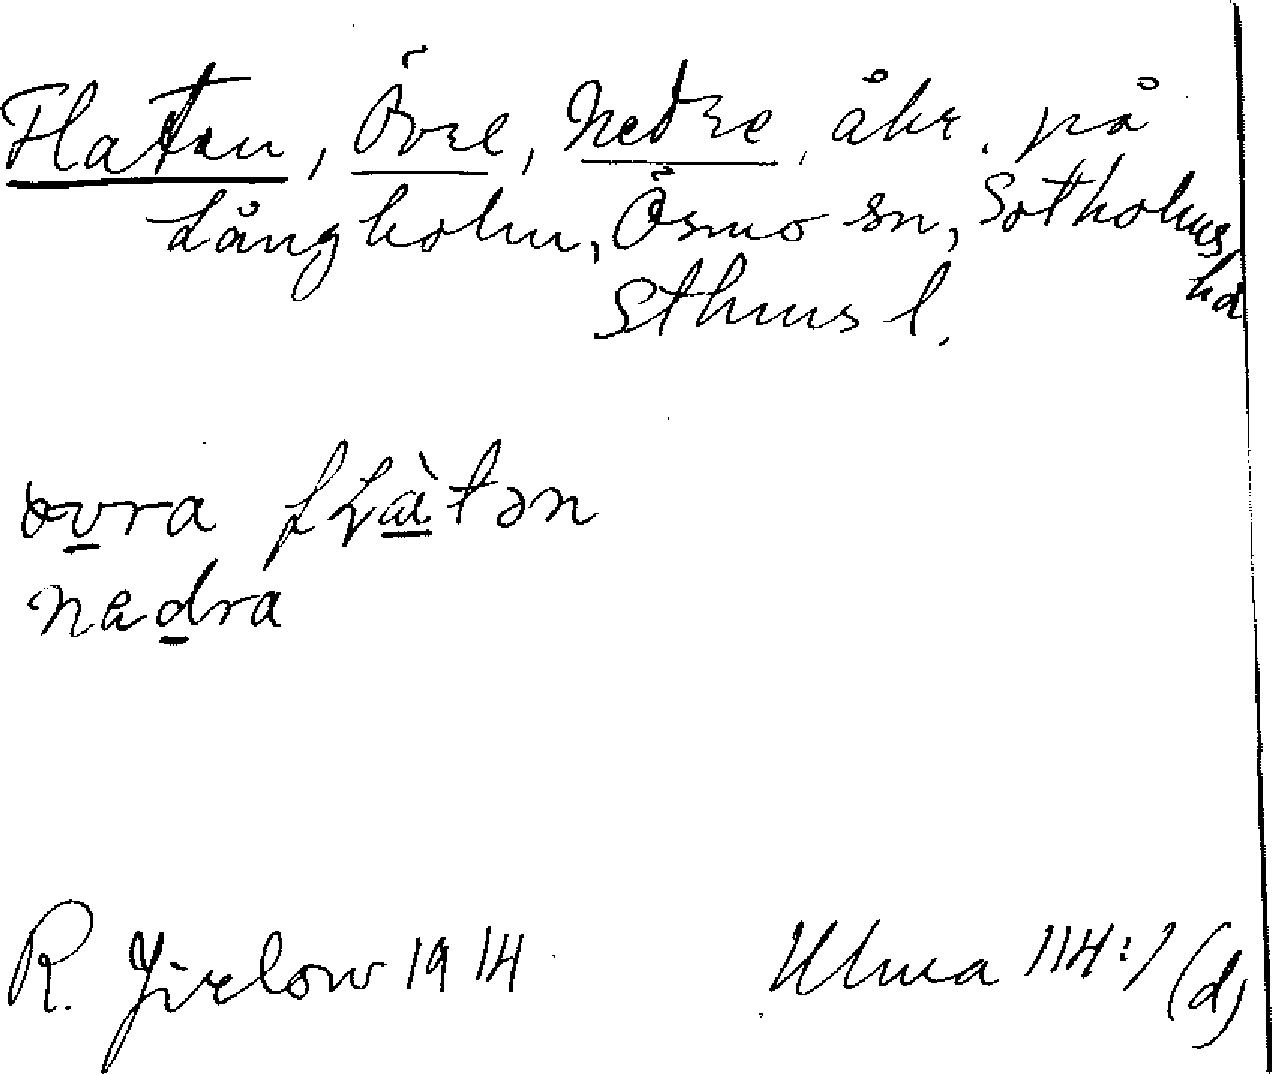 Flaten, Övre, Nedre, åkr. på
Långholm, Ösmo sn, Sotholms
hd
Sthms l.
øvra fLàtən
nedra
R. Jirlow 1914
Ulma 114:1 (d)